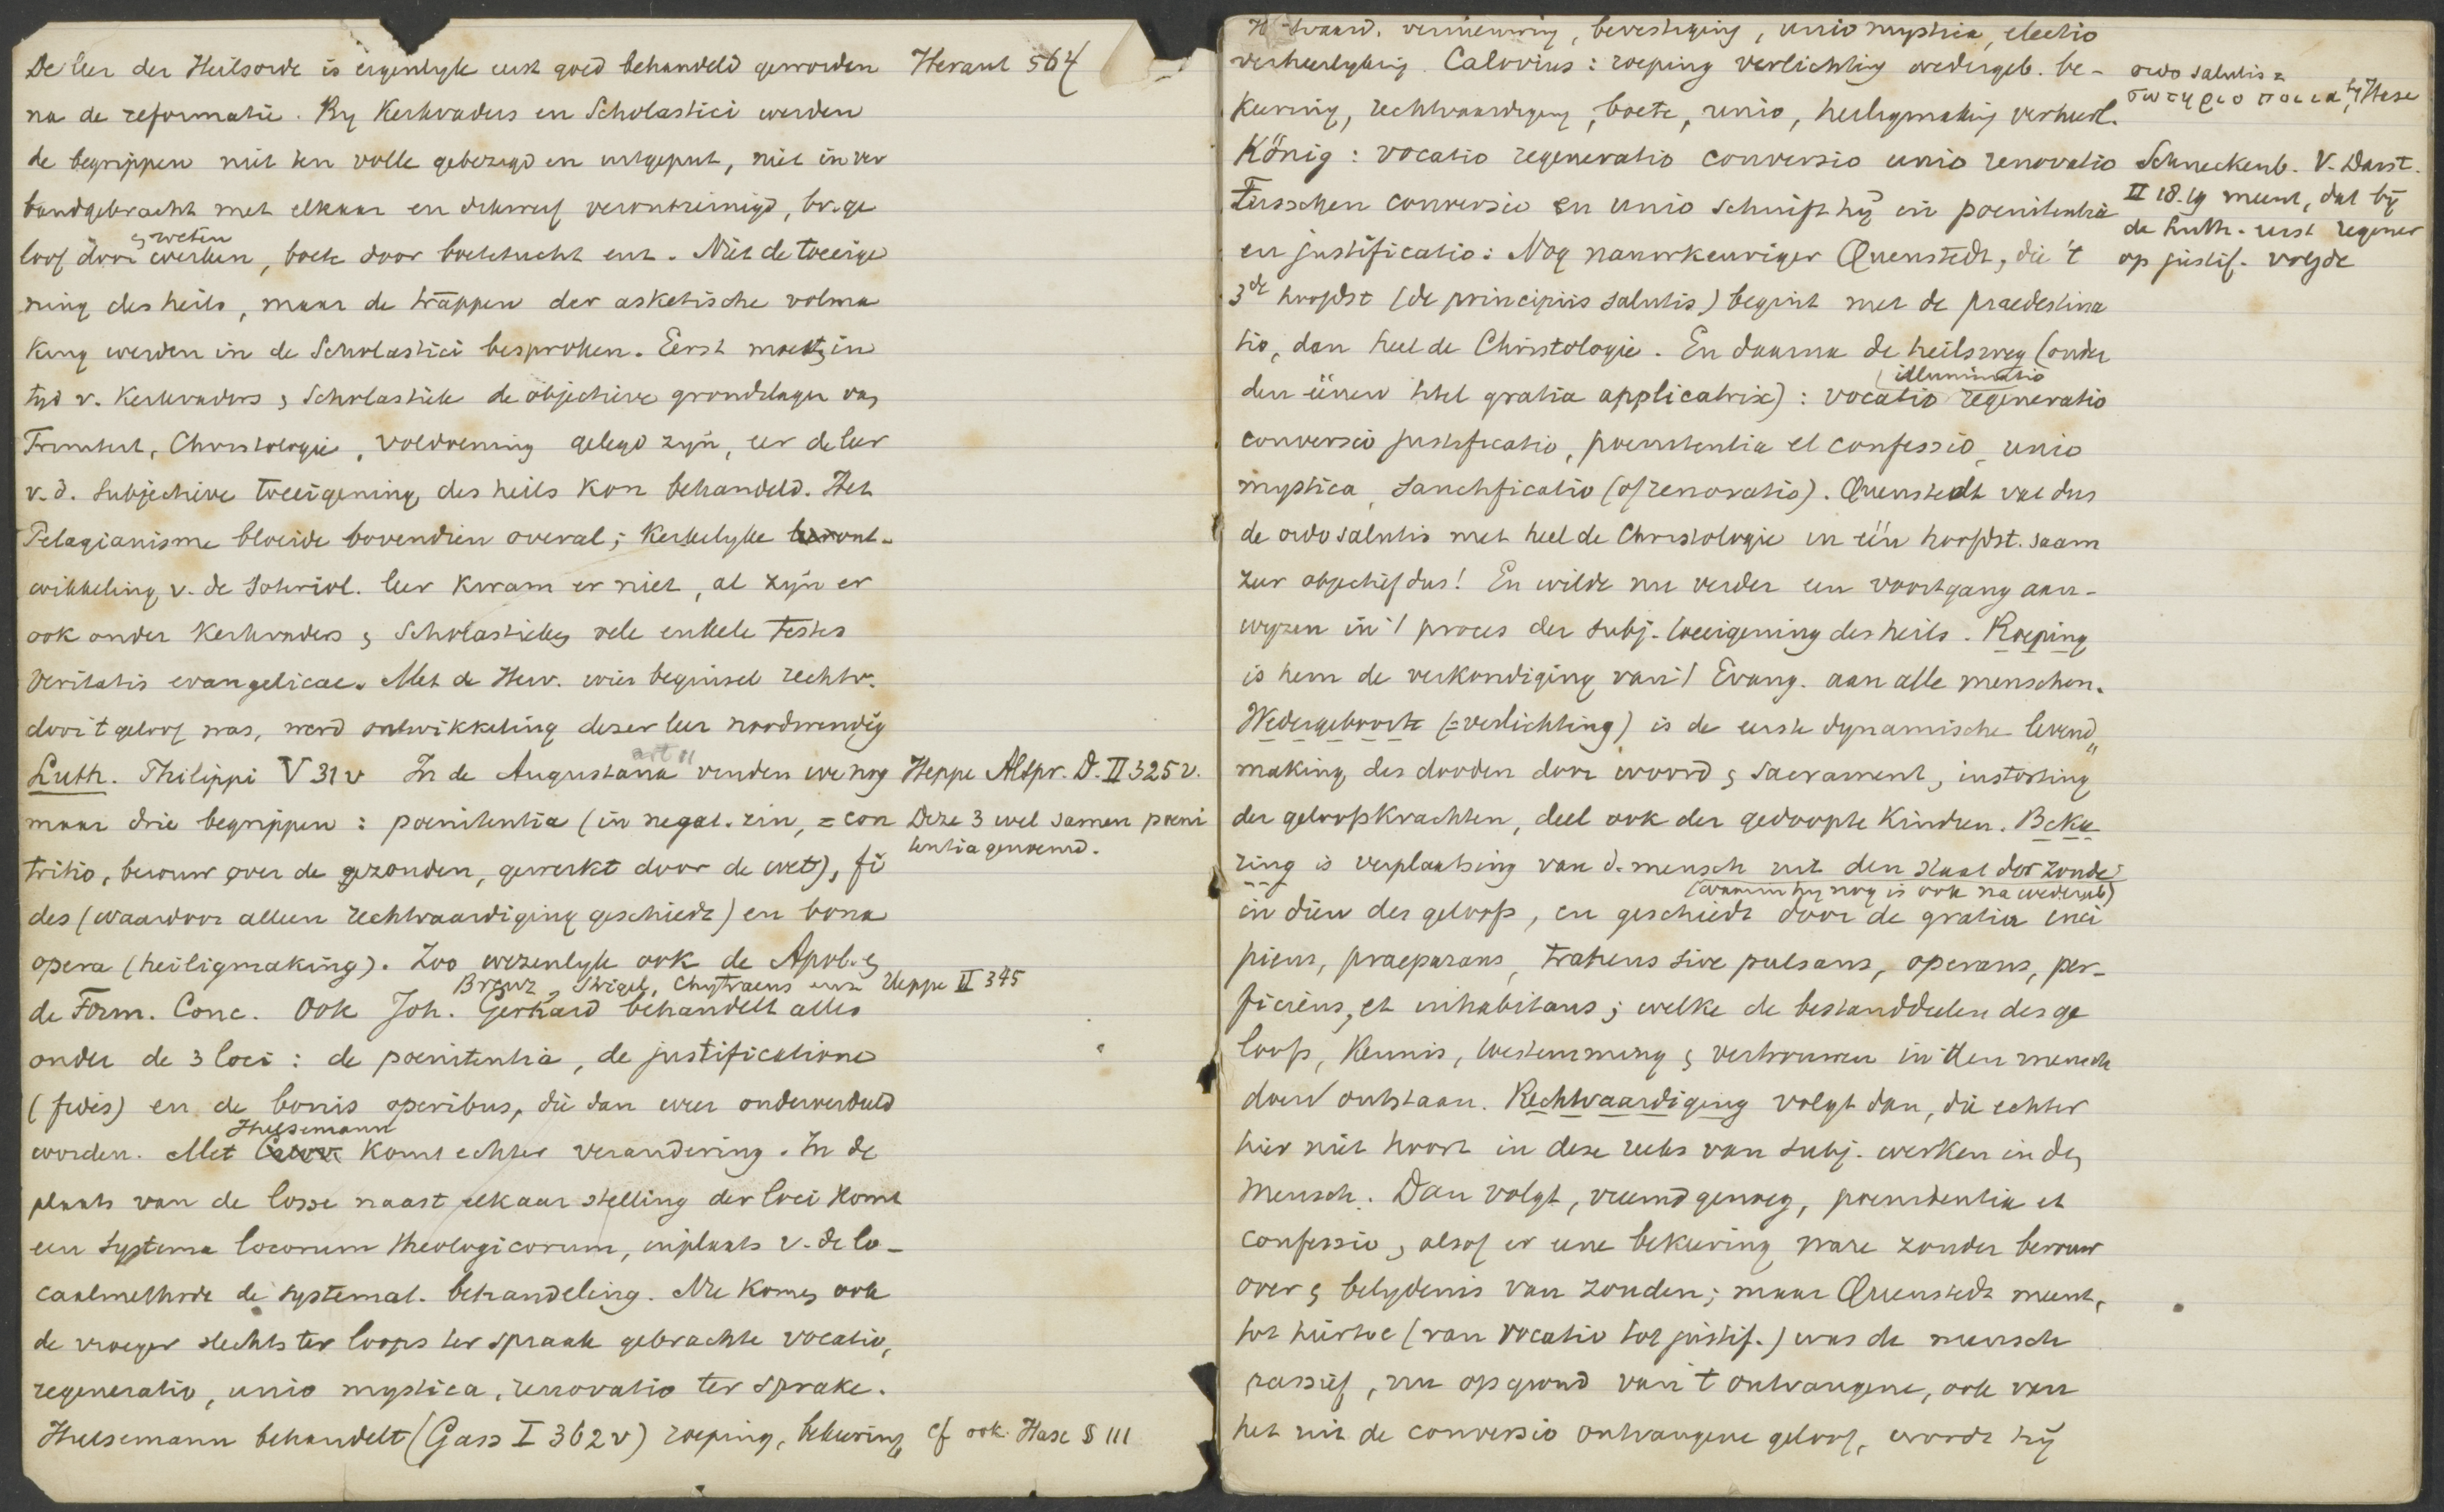 De leer der Heilsorde is eigenlyk eerst goed behandeld geworden
Heraut 564
na de reformatie. By Kerkvaders en Scholastici werden
de begrippen niet ten volle gebezigd en uitgeput, niet in ver
bandgebracht met elkaar en dikwerf verontreinigd, bv. ge
loof door werken, boete door boetetucht enz. Niet de toeeige
& weten
ning des heils, maar de trappen der asketische volma
king werden in de Scholastici besproken. Eerst moest in
tyd v. Kerkvaders & Scholastiek de objectieve grondslagen van
Triniteit, Christologie, voldoening gelegd zyn, eer de leer
v.d. subjectieve toeeigening des heils kon behandeld. Het
Pelagianisme bloeide bovendien overal; Kerkelyke ont-
wikkeling v. de soteriol. leer kwam er niet, al zyn er
ook onder Kerkvaders & Scholastieken vele enkele testes
veritatis evangelicae. Met de Herv. wier beginsel rechtv.
door 't geloof was, werd ontwikkeling dezer leer noodwendig
art 11
Luth. Philippi V 31 v In de Augustana vinden we nog
Heppe Altpr. D. II 325 v.
maar drie begrippen: poenitentia (in negat. zin, = con
Deze 3 wel samen poeni
tentia genoemd.
tritio, berouw over de zonden, gewerkt door de wet), fi
des (waardoor alleen rechtvaardiging geschiedt) en bona
opera (heiligmaking). Zoo wezenlyk ook de Apol. &
Brenz, Strigel, Chytraeus enz
Heppe II 345
de Form. Conc. Ook Joh. Gerhard behandelt alles
onder de 3 loci: de poenitentia, de justificatione
(fides) en de bonis operibus, die dan weer onderverdeeld
Hulsemann
worden. Met komt echter verandering. In de
plaats van de losse naast elkaar stelling der loci komt
een systema locorum theologicorum, inplaats v. de lo-
caalmethode de systemat. behandeling. Nu komen ook
de vroeger slechts ter loops ter spraak gebrachte vocatio,
regeneratio, unio mystica, renovatio ter sprake.
Hulsemann behandelt (Gass I 362 v) roeping, bekeering
cf ook Hase § 111
vernieuwing, bevestiging, unio mystica, electio
verheerlyking. Calovius: roeping verlichting wedergeb. be-
ordo salutis =
σωτηριοποιια by Hase
keering, rechtvaardiging, boete, unio, heiligmaking verheerl.
König: vocatio regeneratio conversio unio renovatio
Schneckenb. V. Darst.
II 18.19 meent, dat bij
de Luth. eerst regener
op justif. volgde
Tusschen conversio en unio schuift hij in poenitentia
en justificatio: Nog nauwkeuriger Quenstedt, die 't
3de hoofdst (de principiis salutis) begint met de praedestina
tio, dan heel de Christologie. En daarna de heilsweg (onder
illuminatio
den éénen titel gratia applicatrix): vocatio regeneratio
conversio justificatio, poenitentia et confessio, unio
mystica, sanctificatio (of renovatio). Quenstedt vat dus
de ordo salutis met heel de Christologie in één hoofdst. saam
zeer objectief dus! En wilde nu verder een voortgang aan-
wyzen in 't proces der subj. toeeigening des heils. Roeping
is hem de verkondiging van 't Evang. aan alle menschen.
Wedergeboorte (= verlichting) is de eerste dynamische levend
making des dooden door woord & sacrament, instorting
der geloofskrachten, deel ook der gedoopte kinderen. Bekee
ring is verplaatsing van d. mensch uit den staat der zonde
(waarin hy nog is ook na wedergeb)
in dien des geloofs, en geschiedt door de gratia inci
piens, praeparans, trahens sive pulsans, operans, per-
ficiens, et inhabitans; welke de bestanddeelen des ge
loofs, kennis, toestemming & vertrouwen in den mensch
doen ontstaan. Rechtvaardiging volgt dan, die echter
hier niet hoort in deze reeks van subj. werken in den
mensch. Dan volgt, vreemd genoeg, poenitentia et
confessio, alsof er eene bekeering ware zonder berouw
over & belydenis van zonden; maar Quenstedt meent,
tot hiertoe (van vocatio tot justif.) was de mensch
passief, nu op grond van 't ontvangene, ook van
het uit de conversio ontvangene geloof, wordt hij